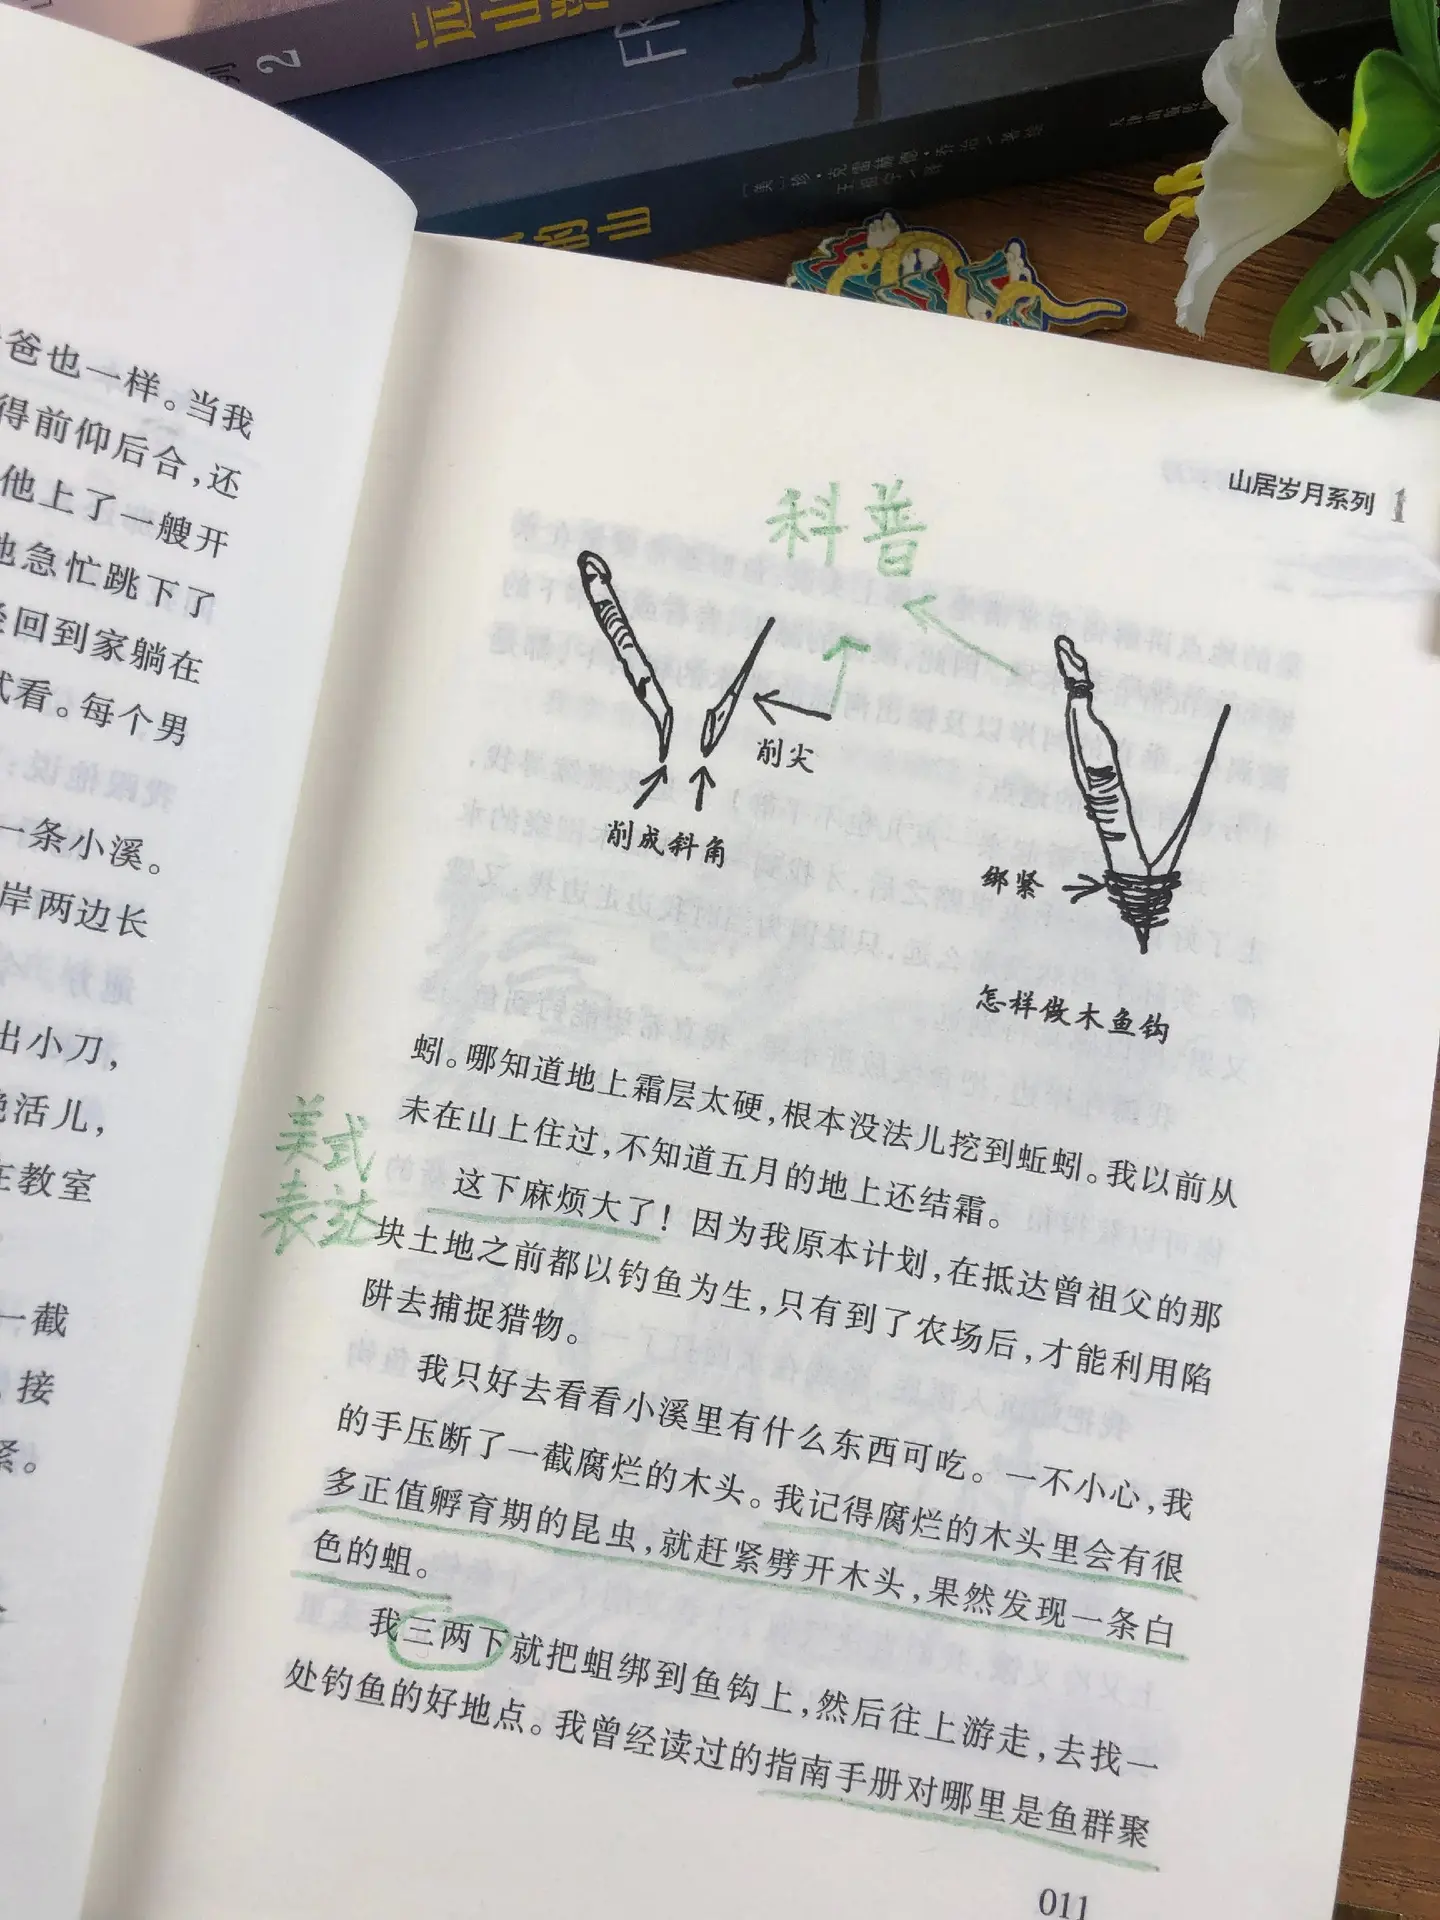 2
FR
[美]珍·克雷赫德·乔治/著绘
爸也一样。当我
得前仰后合，还
他上了一艘开
急忙跳下了
回到家躺在
试看。每个男
一条小溪。
岸两边长
出小刀，
活儿，
在教室
一截
，接
紧。
山居岁月系列 1
科普
削尖
削成斜角
绑紧
怎样做木鱼钩
蚓。哪知道地上霜层太硬，根本没法儿挖到蚯蚓。我以前从
未在山上住过，不知道五月的地上还结霜。
美式
表达
这下麻烦大了！因为我原本计划，在抵达曾祖父的那
块土地之前都以钓鱼为生，只有到了农场后，才能利用陷
阱去捕捉猎物。
我只好去看看小溪里有什么东西可吃。一不小心，我
的手压断了一截腐烂的木头。我记得腐烂的木头里会有很
多正值孵育期的昆虫，就赶紧劈开木头，果然发现一条白
色的蛆。
我三两下就把蛆绑到鱼钩上，然后往上游走，去找一
处钓鱼的好地点。我曾经读过的指南手册对哪里是鱼群聚
011